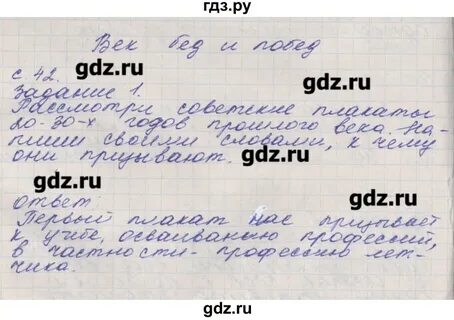 гдз.ру
Век бед и побед
gdz.ru gdz.ru
с 42.
Задание 1.
Рассмотри советские плакаты
20-30-х годов прошлого века. На-
пиши своими словами, к чему
они призывают.
gdz.ru gdz.ru
gdz.ru gdz.ru
ответ:
Первый плакат нас призывает
к учёбе, осваиванию профессий,
в частности - профессию лёт-
чика.
gdz.ru gdz.ru